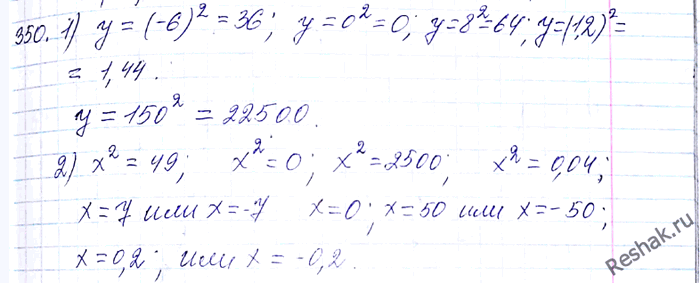 350. 1) y = (-6)² = 36; y = 0² = 0; y = 8² = 64; y = (1,2)² =
= 1,44.
y = 150² = 22500.
2) x² = 49; x² = 0; x² = 2500; x² = 0,04;
x = 7 или x = -7 x = 0; x = 50 или x = -50;
x = 0,2; или x = -0,2.
Reshak.ru